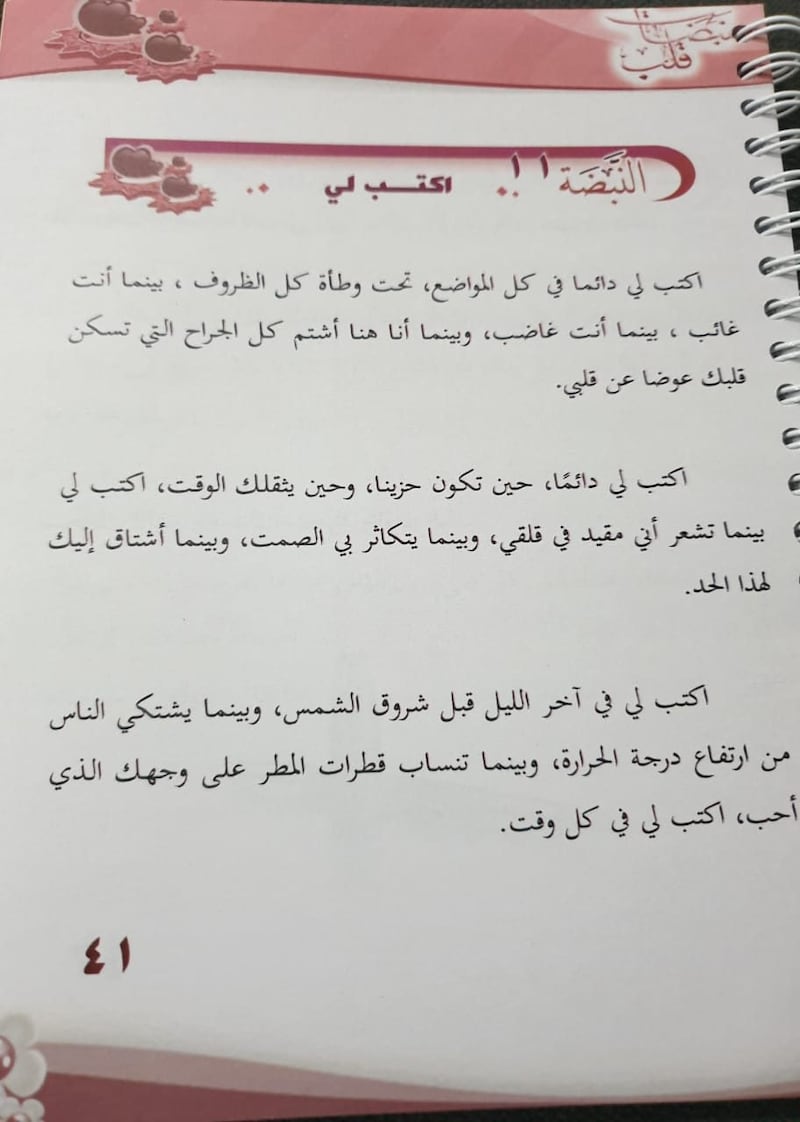 نبضات قلب
النَّبْضَة ١١ .. اكتب لي ..
اكتب لي دائما في كل المواضع، تحت وطأة كل الظروف ، بينما أنت
غائب ، بينما أنت غاضب، وبينما أنا هنا أشتم كل الجراح التي تسكن
قلبك عوضا عن قلبي.
اكتب لي دائمًا، حين تكون حزينا، وحين يثقلك الوقت، اكتب لي
بينما تشعر أني مقيد في قلقي، وبينما يتكاثر بي الصمت، وبينما أشتاق إليك
لهذا الحد.
اكتب لي في آخر الليل قبل شروق الشمس، وبينما يشتكي الناس
من ارتفاع درجة الحرارة، وبينما تنساب قطرات المطر على وجهك الذي
أحب، اكتب لي في كل وقت.
٤١